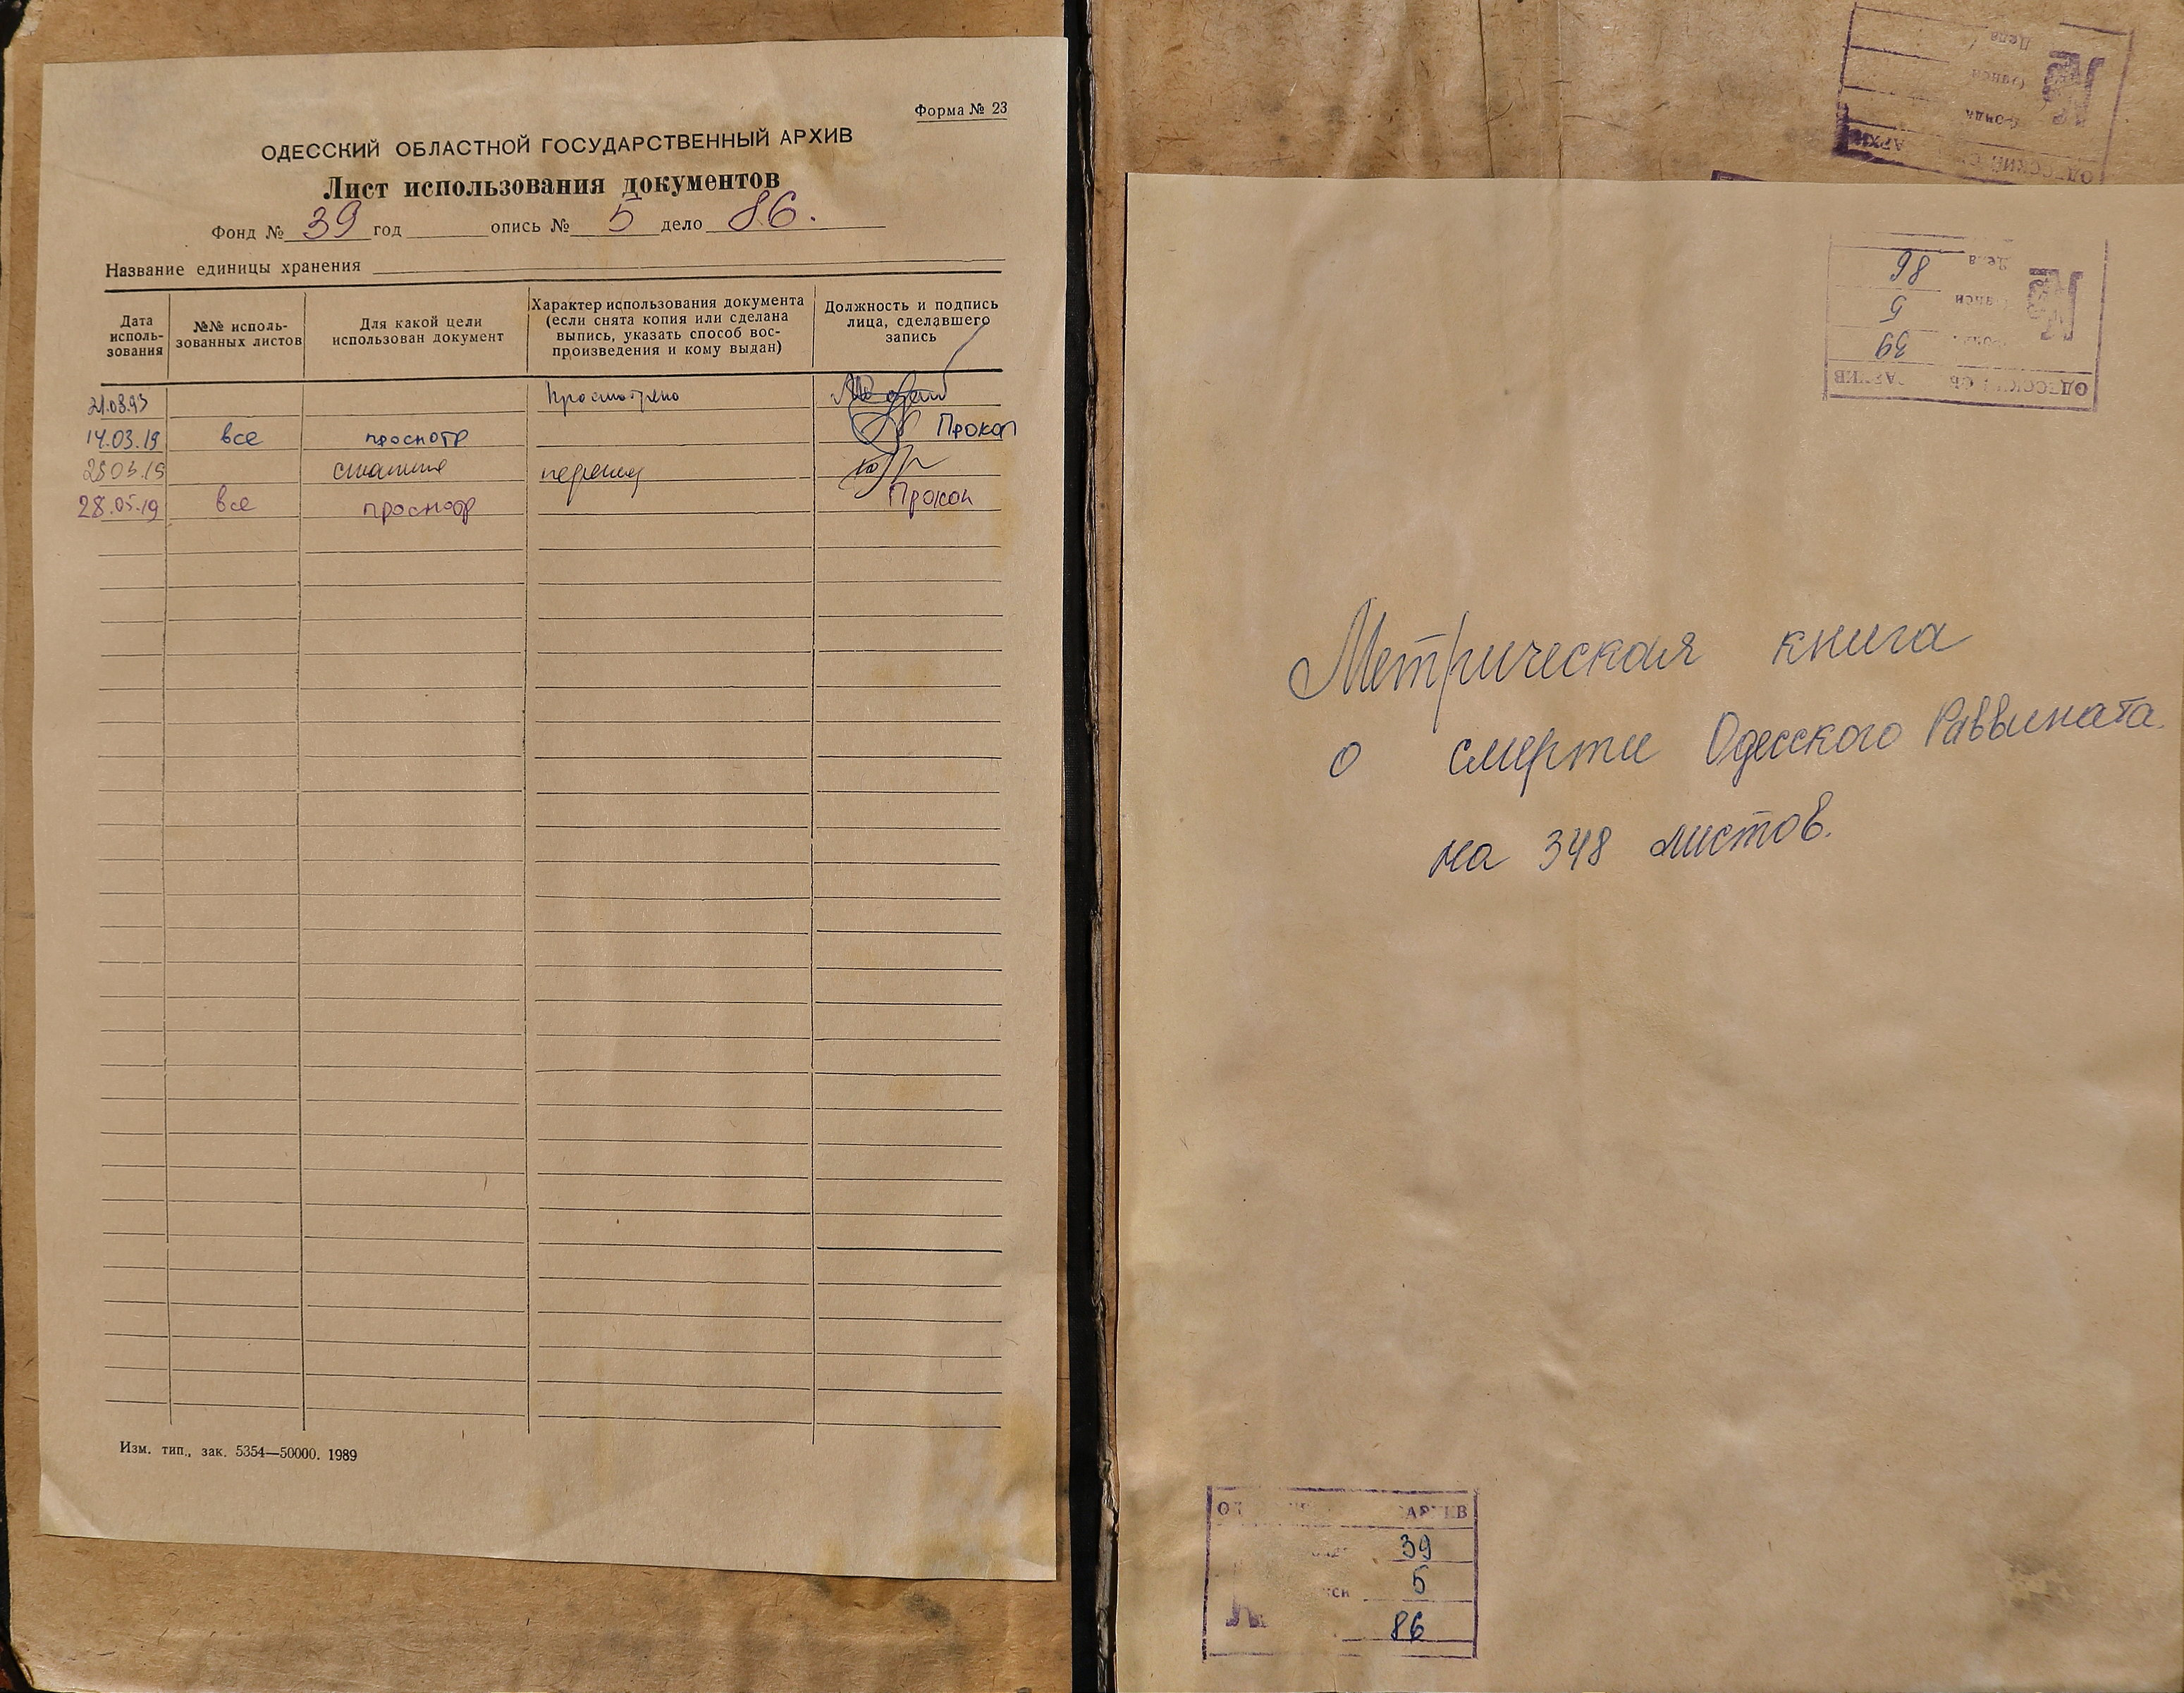 Форма № 23
ОДЕССКИЙ ОБЛАСТНОЙ ГОСУДАРСТВЕННЫЙ АРХИВ
Лист использования документов
Фонд № 39 год опись № 5 дело 86.
Название единицы хранения
Дата исполь-зования
№№ исполь-зованных листов
Для какой цели использован документ
Характер использования документа (если снята копия или сделана выпись, указать способ вос-произведения и кому выдан)
Должность и подпись лица, сделавшего запись
21.08.93 Просмотрено
14.03.19 все просмотр Прокоп
28.05.19 все просмотр Прокоп
Изм. тип., зак. 5354—50000. 1989
ОДЕССКИЙ АРХИВ
Фонда
Описи
Дела
ОДЕССКИЙ АРХИВ
39
Описи 5
Дела 86
Метрическая книга
о смерти Одесского Раввината.
на 348 листов.
АРХИВ
39
5
86